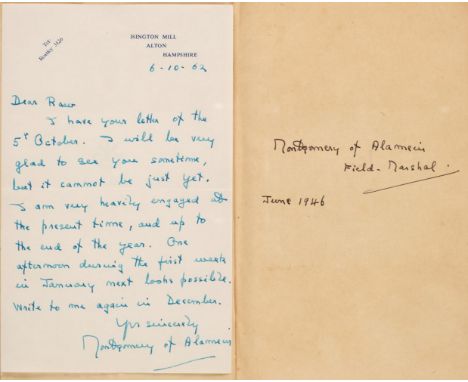 Tel:
Bentley 3126
ISINGTON MILL
ALTON
HAMPSHIRE
6-10-62
Dear Raw
I have your letter of the
5th October. I will be very
glad to see you sometime,
but it cannot be just yet.
I am very heavily engaged at
the present time, and up to
the end of the year. One
afternoon during the first week
in January next looks possible.
Write to me again in December.
Yrs sincerely
Montgomery of Alamein
Montgomery of Alamein
Field-Marshal.
June 1946